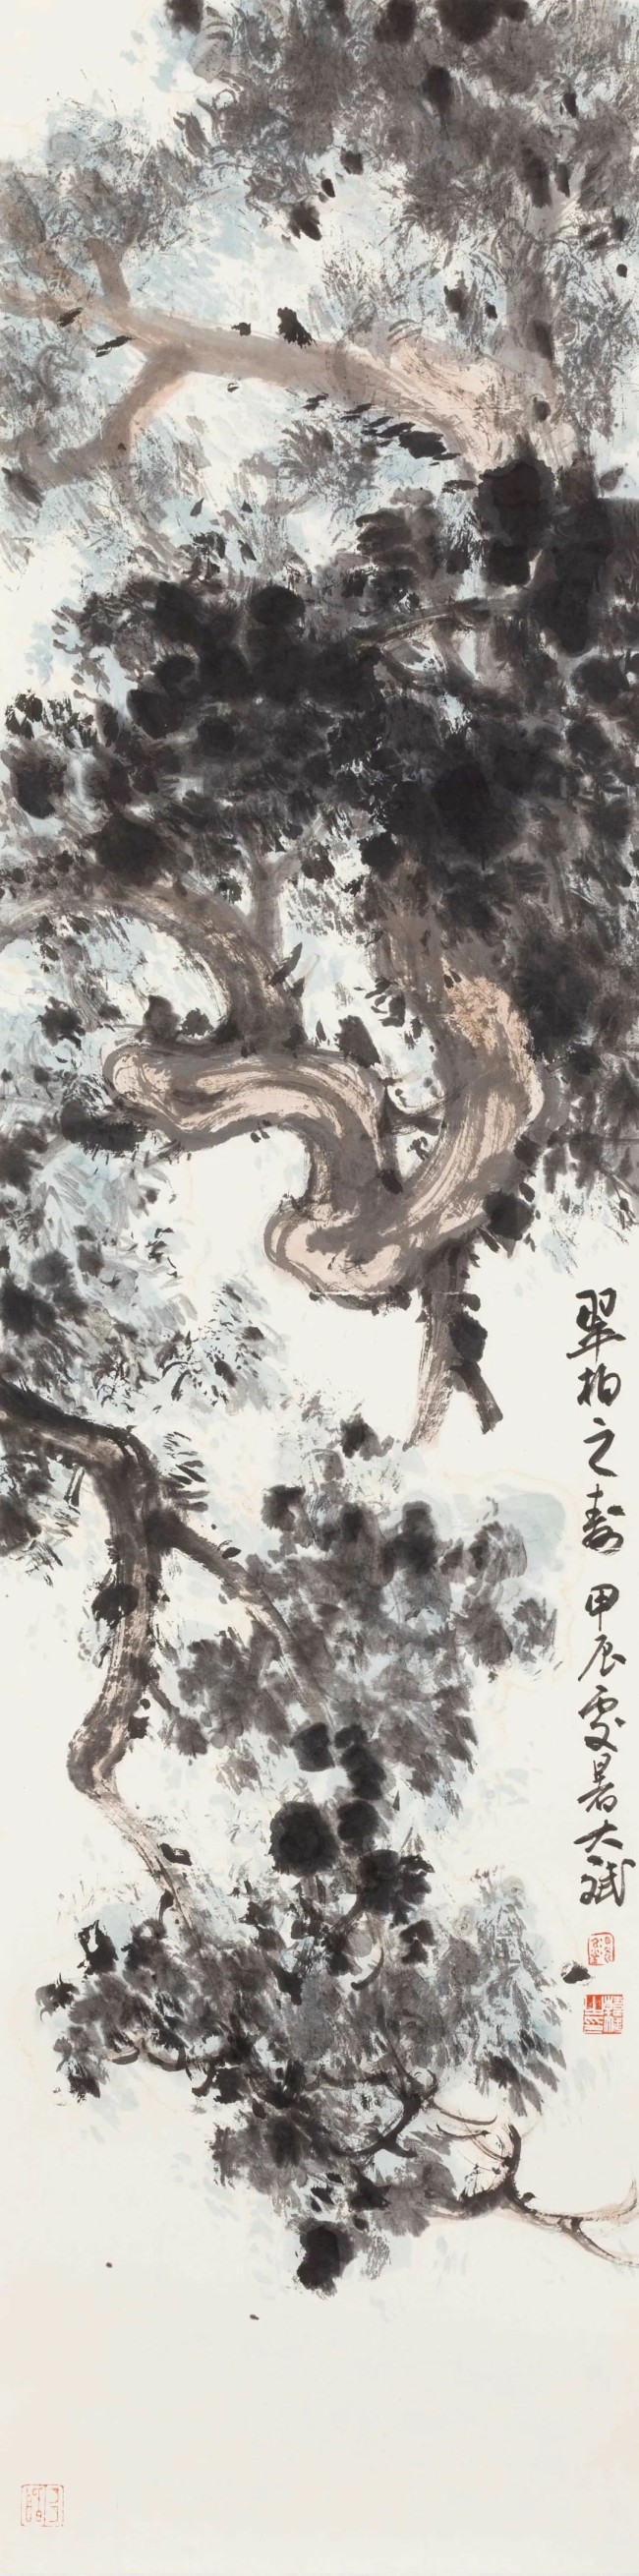 翠柏之壽 甲辰處暑大斌